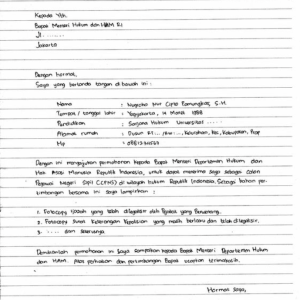 Kepada Yth.
Bapak Menteri Hukum dan HAM RI
Jl. ......
Jakarta
Dengan hormat,
Saya yang bertanda tangan di bawah ini :
Nama : Nugroho Nur Cipto Pamungkas, S.H.
Tempat / tanggal lahir : Yogyakarta, 14 Maret 1988
Pendidikan : Sarjana Hukum Universitas .....
Alamat rumah : Dusun RT.../RW..., Kelurahan, Kec, Kabupaten, Prop
Hp :
Dengan ini mengajukan permohonan kepada Bapak Menteri Departemen Hukum dan
Hak Asasi Manusia Republik Indonesia, untuk dapat menerima saya sebagai Calon
Pegawai Negeri Sipil (CPNS) di wilayah hukum Republik Indonesia. Sebagai bahan per-
timbangan bersama ini saya lampirkan :
1. Fotocopy Ijazah yang telah dilegalisir oleh Pejabat yang Berwenang.
2. Fotocopy Surat Keterangan Kepolisian yang masih berlaku dan telah dilegalisir.
3. ..... dan seterusnya.
Demikianlah permohonan ini saya sampaikan kepada Bapak Menteri Departemen Hukum
dan HAM. Atas perhatian dan pertimbangan Bapak ucapkan terimakasih.
Hormat Saya,